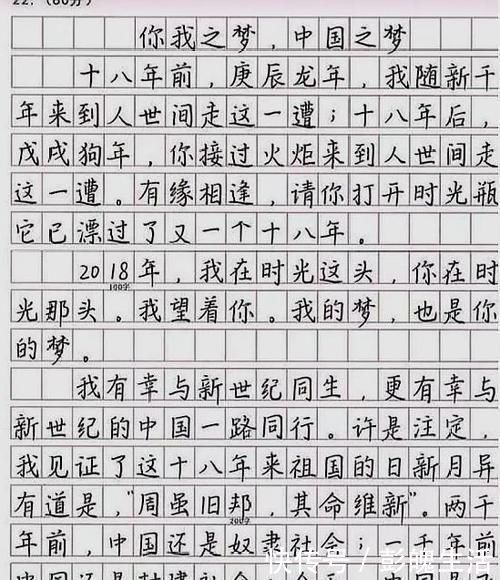 22.(60分)
你我之梦，中国之梦
十八年前，庚辰龙年，我随新千
年来到人世间走这一遭；十八年后，
戊戌狗年，你接过火炬来到人世间走
这一遭。有缘相逢，请你打开时光瓶
它已漂过了又一个十八年。
2018年，我在时光这头，你在时
100字
光那头。我望着你。我的梦，也是你
的梦。
我有幸与新世纪同生，更有幸与
新世纪的中国一路同行。许是注定，
我见证了这十八年来祖国的日新月异
有道是，"周虽旧邦，其命维新"。两千
200字
年前，中国还是奴隶社会；一千年前
快传号/彭晚生活